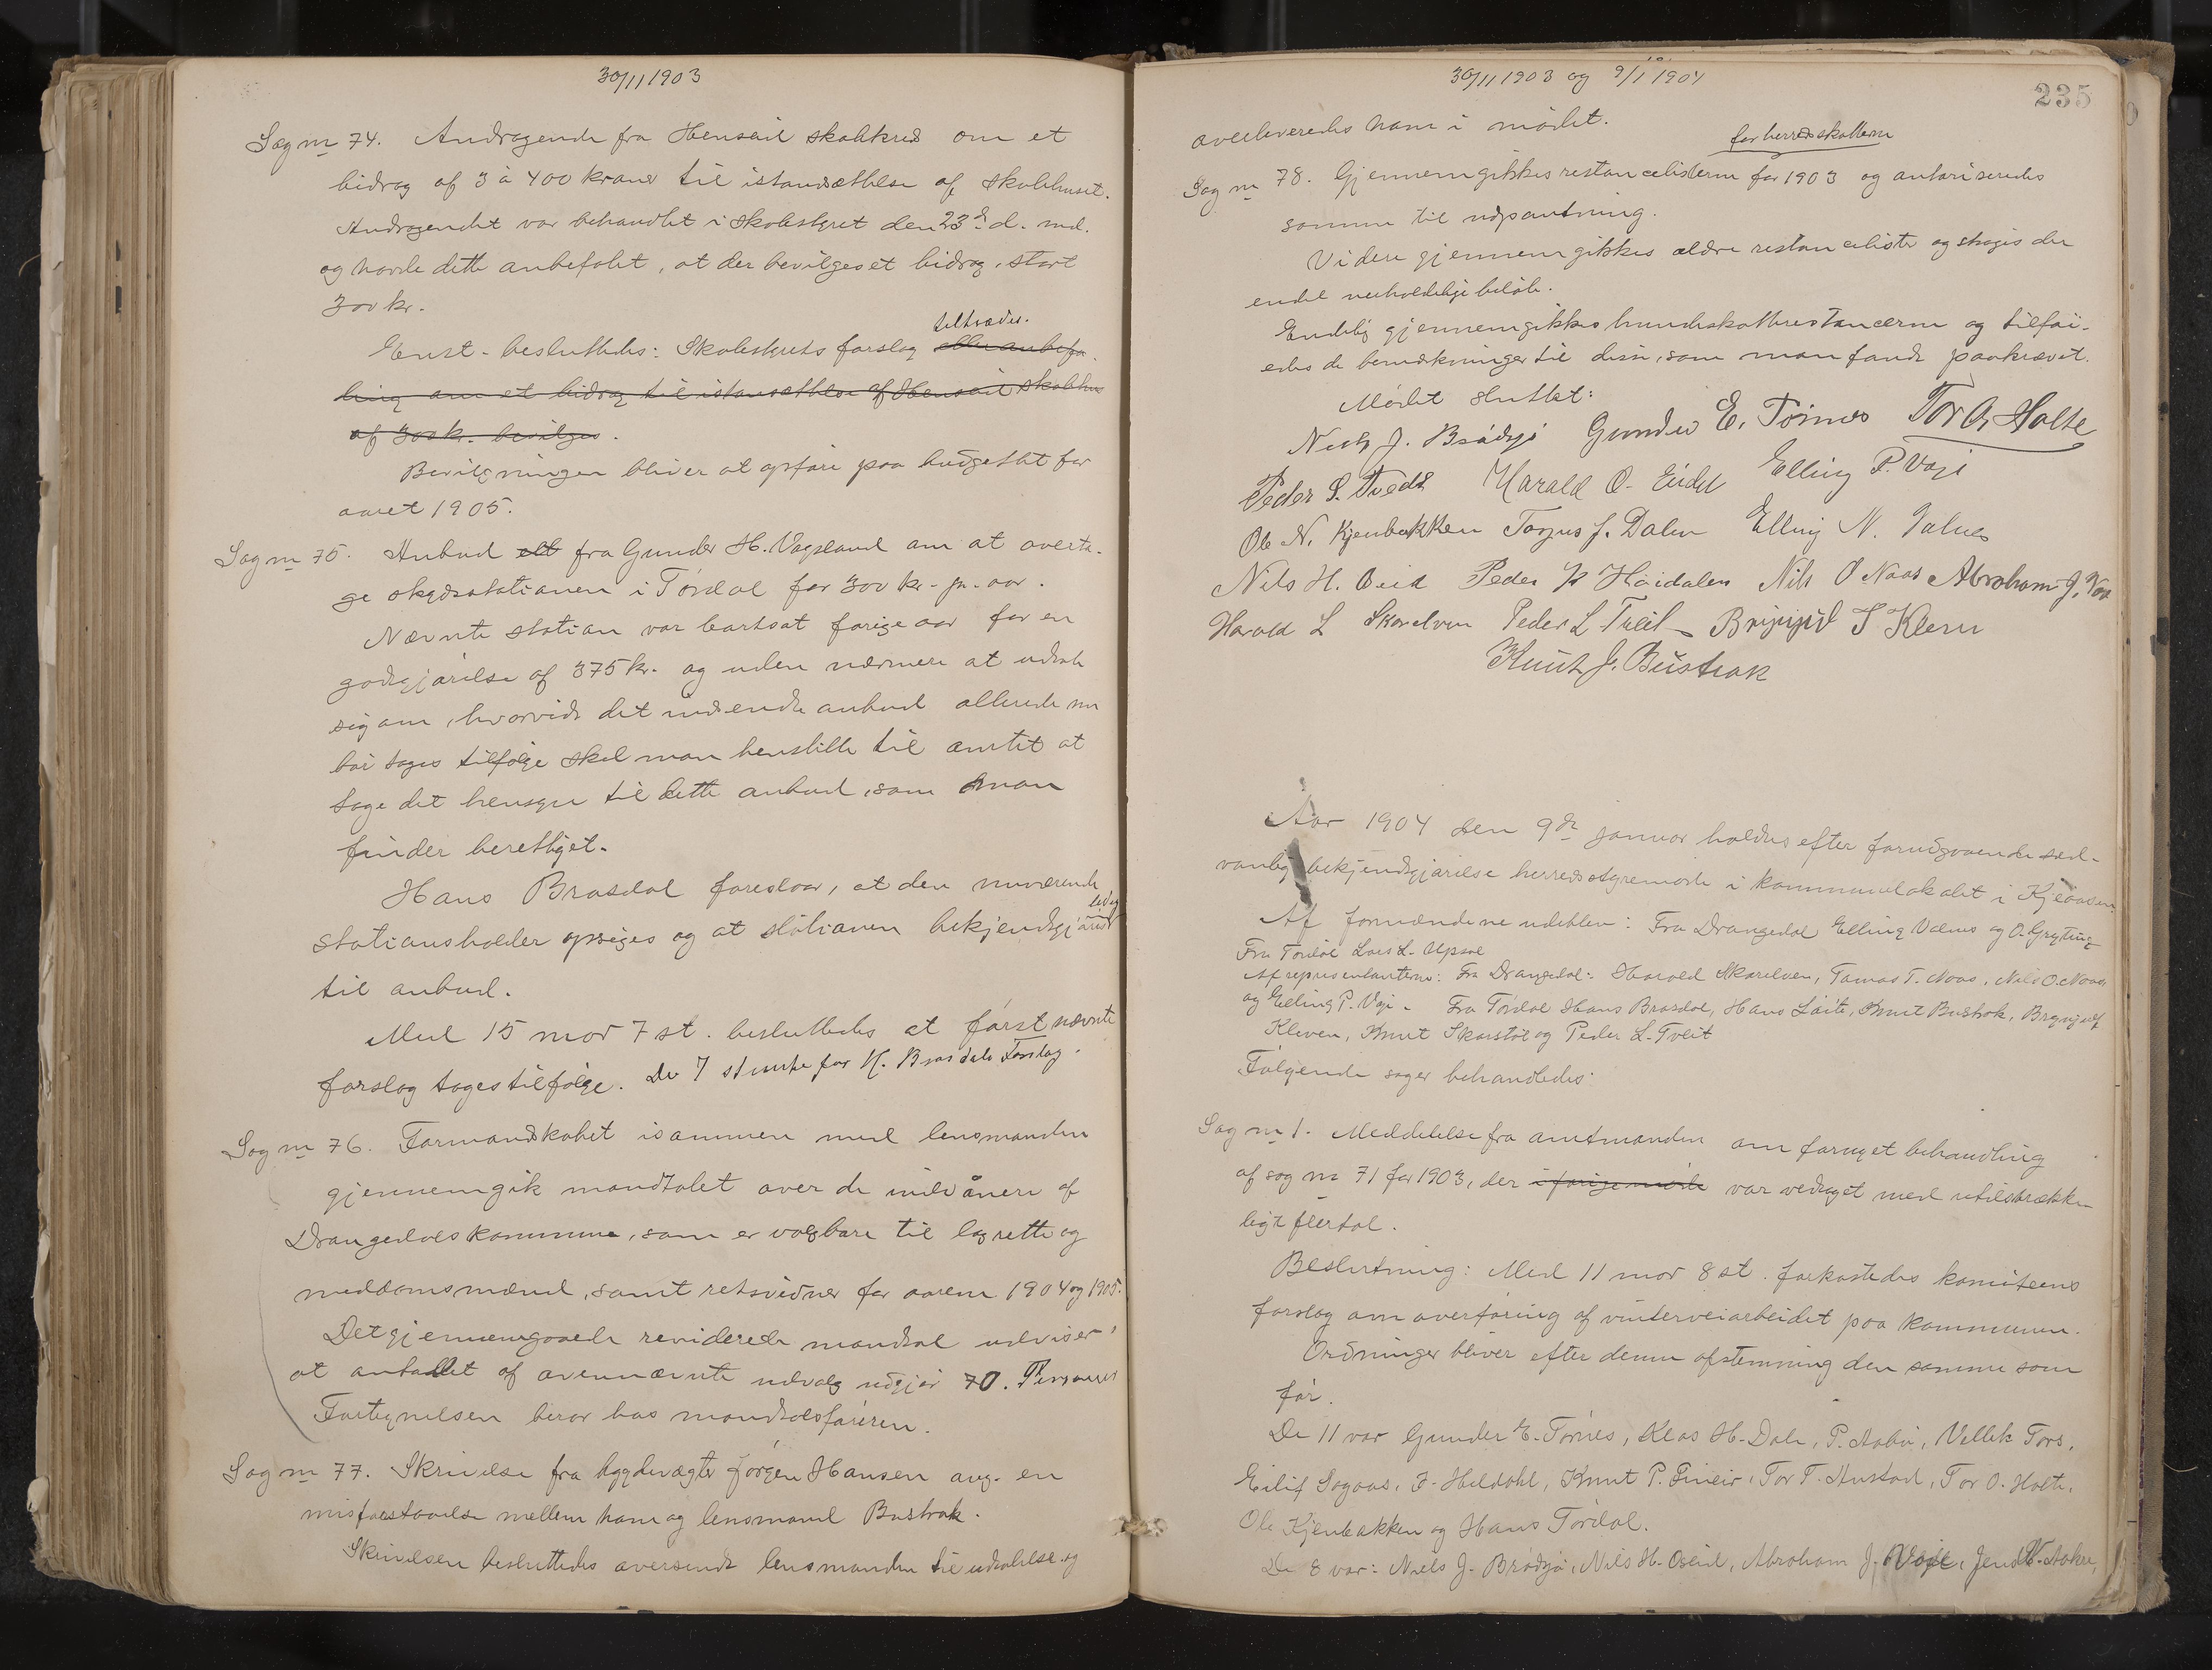 30/11 1903
Sag nr 74. Andragende fra Henseid skolekreds om et
bidrag af 3 à 400 kroner til istandsættelse af skolehuset.
Andragendet var behandlet i skolestyret den 23de d. md.
og havde dette anbefalet, at der bevilges et bidrag, stort
300 kr.
tiltrædes.
Enst. besluttedes: Skolestyrets forslag eller anbefa
ling om et bidrag til istansættelse af Henseid skolehus
af 300 kr. bevilges.
Bevilgningen bliver at opføre paa budgettet for
aaret 1905.
Sag nr 75. Anbud fra Gunder H. Vågsland om at overta-
ge skydsstationen i Tørdal for 300 kr. pr. aar.
Nævnte station var bortsat forige aar for en
godtgjørelse af 375 kr. og uden nærmere at udtale
sig om, hvorvidt det indsendte anbud allerede nu
bør tages tilfølge skal man henstille til amtet at
tage det hensyn til dette anbud, som man
finder berettiget.
Hans Brødsdal foreslaar, at den nuværende
ledig
stationsholder opsiges og at stationen bekjendtgjøres
til anbud.
Med 15 mod 7 st. besluttedes at førstnævnte
forslag tages tilfølge. De 7 stemte for H. Brødsdals Forslag.
Sag nr 76. Formandskabet isammen med lensmanden
gjennemgik mandtalet over de indvånere af
Drangedals kommune, som er valgbare til lagrette og
meddomsmænd, samt retsvidner for aarene 1904 og 1905.
Det gjennemgaaede reviderede mandtal udviser,
at antallet af ovennævnte udvalg udgjør 70. Personer
Fortegnelsen beror hos mandtalsføreren.
Sag nr 77. Skrivelse fra bygdevægter Jørgen Hansen ang. en
misforstaaelse mellem ham og lensmand Bustrak.
Skrivelsen besluttedes oversendt lensmanden til udtalelse og
30/11 1903 og 9/1 1904
235
overleveredes ham i mødet.
for herredsskatten
Sag nr 78. Gjennemgikkes restancelisterne for 1903 og autoriseredes
samme til udpantning.
Videre gjennemgikkes ældre restancelister og strøges der
endel uerholdelige beløb.
Endelig gjennemgikkes hundeskatterestancerne og tilføi-
edes de bemærkninger til disse, som man fandt paakrævet.
Mødet sluttet:
Niels J. Brødsjø Gunder E. Tørnes Tor O. Holte
Peder S. Tvedt Harald O. Eidet Elling P. Voje
Ole N. Kjenbakken Torjus J. Dalen Elling N. Valnes
Nils H. Oseid Peder P Høidalen Nils O Naas Abraham J. Voje
Harald L Skarelven Peder L Tveit Brynjulf T Kleven
Knut J. Bustrak
Aar 1904 den 9de januar holdtes efter forudgaaende sæd-
vanlig bekjendtgjørelse herredsstyremøde i kommunelokalet i Kjeaasen.
Af formændene udeblev: Fra Drangedal Elling Valnes og O. Gryting
Fra Tørdal Lars L. Upsal
Af repræsentanterne: Fra Drangedal: Harald Skarelven, Tomas T. Naas, Nils O. Naas
og Elling P. Voje. Fra Tørdal Hans Brødsdal, Hans Løite, Knut Bustrak, Brynjulf
Kleven, Knut Skarstøl og Peder L. Tveit
Følgende sager behandledes:
Sag nr 1. Meddelelse fra amtmanden om fornyet behandling
af sag nr 71 for 1903, der i forige møde var vedtaget med utilstrække-
ligt flertal.
Beslutning: Med 11 mod 8 st. forkastedes komiteens
forslag om overføring af vinterveiarbeidet paa kommunen.
Ordningen bliver efter denne afstemning den samme som
før.
De 11 var Gunder E. Tørnes, Klas H. Dale, P. Aabø, Vellek Tors,
Eilif Sagaas, F. Heldahl, Knut P. Fineid, Tor T. Austad, Tor O. Holte,
Ole Kjenbakken og Hans Tørdal.
De 8 var: Niels J. Brødsjø, Nils H. Oseid, Abraham J. Voje, Jens N. Aaker,